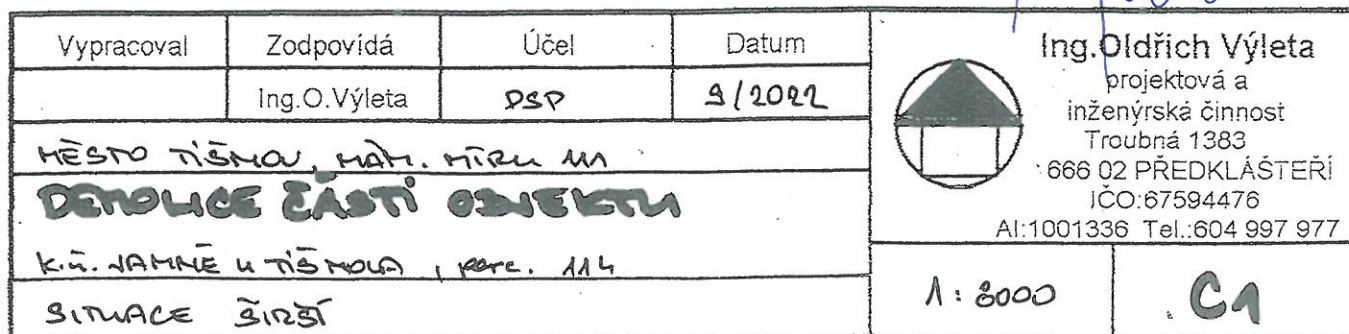 Vypracoval Zodpovídá Účel Datum
Ing.O.Výleta DSP 9/2022
MĚSTO TIŠNOV, NÁM. MÍRU 111
DEMOLICE ČÁSTI OBJEKTU
K.Ú. JAMNÉ U TIŠNOVA, parc. 114
SITUACE ŠIRŠÍ
Ing.Oldřich Výleta
projektová a
inženýrská činnost
Troubná 1383
666 02 PŘEDKLÁŠTEŘÍ
IČO:67594476
AI:1001336 Tel.:604 997 977
C1